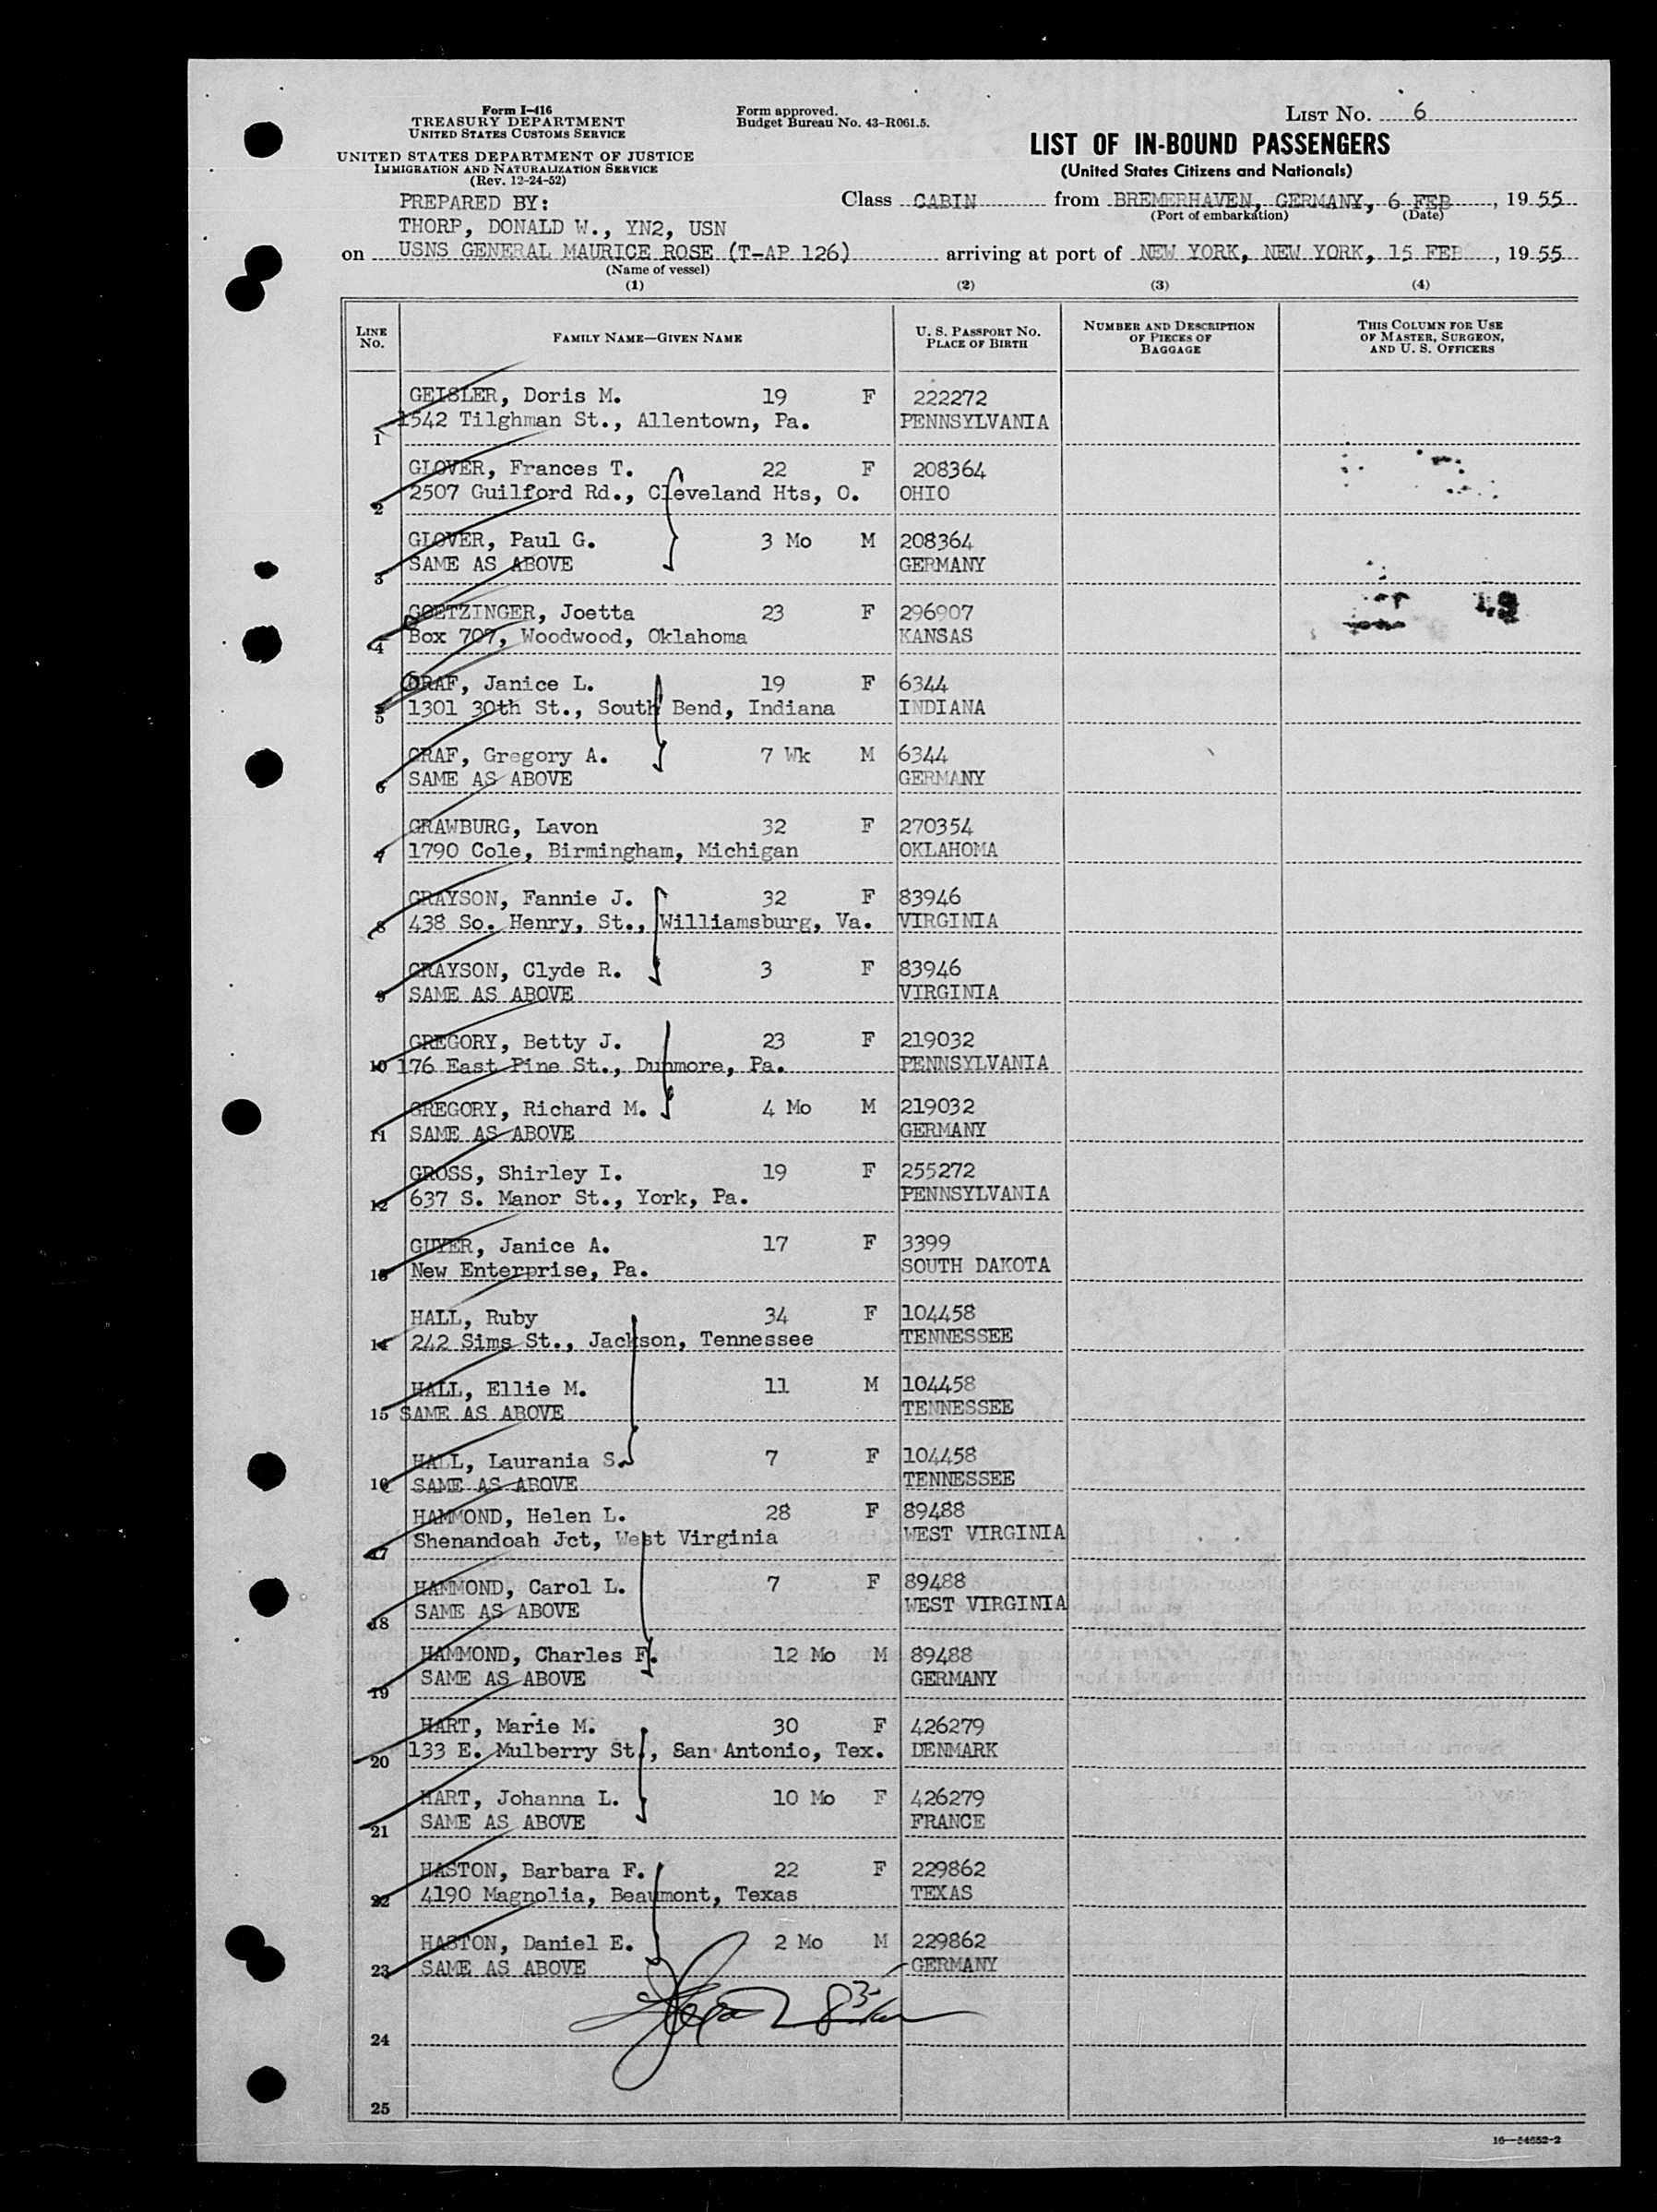 Form I-416
TREASURY DEPARTMENT
UNITED STATES CUSTOMS SERVICE
UNITED STATES DEPARTMENT OF JUSTICE
IMMIGRATION AND NATURALIZATION SERVICE
(Rev. 12-24-52)
Form approved.
Budget Bureau No. 43-R061.5.
LIST NO. 6
LIST OF IN-BOUND PASSENGERS
(United States Citizens and Nationals)
PREPARED BY:
THORP, DONALD W., YN2, USN
Class CABIN from BREMERHAVEN, GERMANY, 6 FEB, 1955
(Port of embarkation) (Date)
on USNS GENERAL MAURICE ROSE (T-AP 126) arriving at port of NEW YORK, NEW YORK, 15 FEB, 1955
(Name of vessel)
(1) (2) (3) (4)
LINE NO. FAMILY NAME—GIVEN NAME U. S. PASSPORT NO. PLACE OF BIRTH NUMBER AND DESCRIPTION OF PIECES OF BAGGAGE THIS COLUMN FOR USE OF MASTER, SURGEON, AND U. S. OFFICERS
GEISLER, Doris M. 19 F 222272
1 1542 Tilghman St., Allentown, Pa. PENNSYLVANIA
GLOVER, Frances T. 22 F 208364
2 2507 Guilford Rd., Cleveland Hts, O. OHIO
GLOVER, Paul G. 3 Mo M 208364
3 SAME AS ABOVE GERMANY
GOETZINGER, Joetta 23 F 296907
4 Box 707, Woodwood, Oklahoma KANSAS
GRAF, Janice L. 19 F 6344
5 1301 30th St., South Bend, Indiana INDIANA
GRAF, Gregory A. 7 Wk M 6344
6 SAME AS ABOVE GERMANY
GRAWBURG, Lavon 32 F 270354
7 1790 Cole, Birmingham, Michigan OKLAHOMA
GRAYSON, Fannie J. 32 F 83946
8 438 So. Henry, St., Williamsburg, Va. VIRGINIA
GRAYSON, Clyde R. 3 F 83946
9 SAME AS ABOVE VIRGINIA
GREGORY, Betty J. 23 F 219032
10 176 East Pine St., Dunmore, Pa. PENNSYLVANIA
GREGORY, Richard M. 4 Mo M 219032
11 SAME AS ABOVE GERMANY
GROSS, Shirley I. 19 F 255272
12 637 S. Manor St., York, Pa. PENNSYLVANIA
GUYER, Janice A. 17 F 3399
13 New Enterprise, Pa. SOUTH DAKOTA
HALL, Ruby 34 F 104458
14 242 Sims St., Jackson, Tennessee TENNESSEE
HALL, Ellie M. 11 M 104458
15 SAME AS ABOVE TENNESSEE
HALL, Laurania S. 7 F 104458
16 SAME AS ABOVE TENNESSEE
HAMMOND, Helen L. 28 F 89488
17 Shenandoah Jct, West Virginia WEST VIRGINIA
HAMMOND, Carol L. 7 F 89488
18 SAME AS ABOVE WEST VIRGINIA
HAMMOND, Charles F. 12 Mo M 89488
19 SAME AS ABOVE GERMANY
HART, Marie M. 30 F 426279
20 133 E. Mulberry St., San Antonio, Tex. DENMARK
HART, Johanna L. 10 Mo F 426279
21 SAME AS ABOVE FRANCE
HASTON, Barbara F. 22 F 229862
22 4190 Magnolia, Beaumont, Texas TEXAS
HASTON, Daniel E. 2 Mo M 229862
23 SAME AS ABOVE GERMANY
24
25
16—54652-2